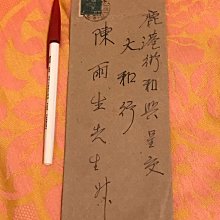 鹿港街和興呈交
大和行
陳雨生先生